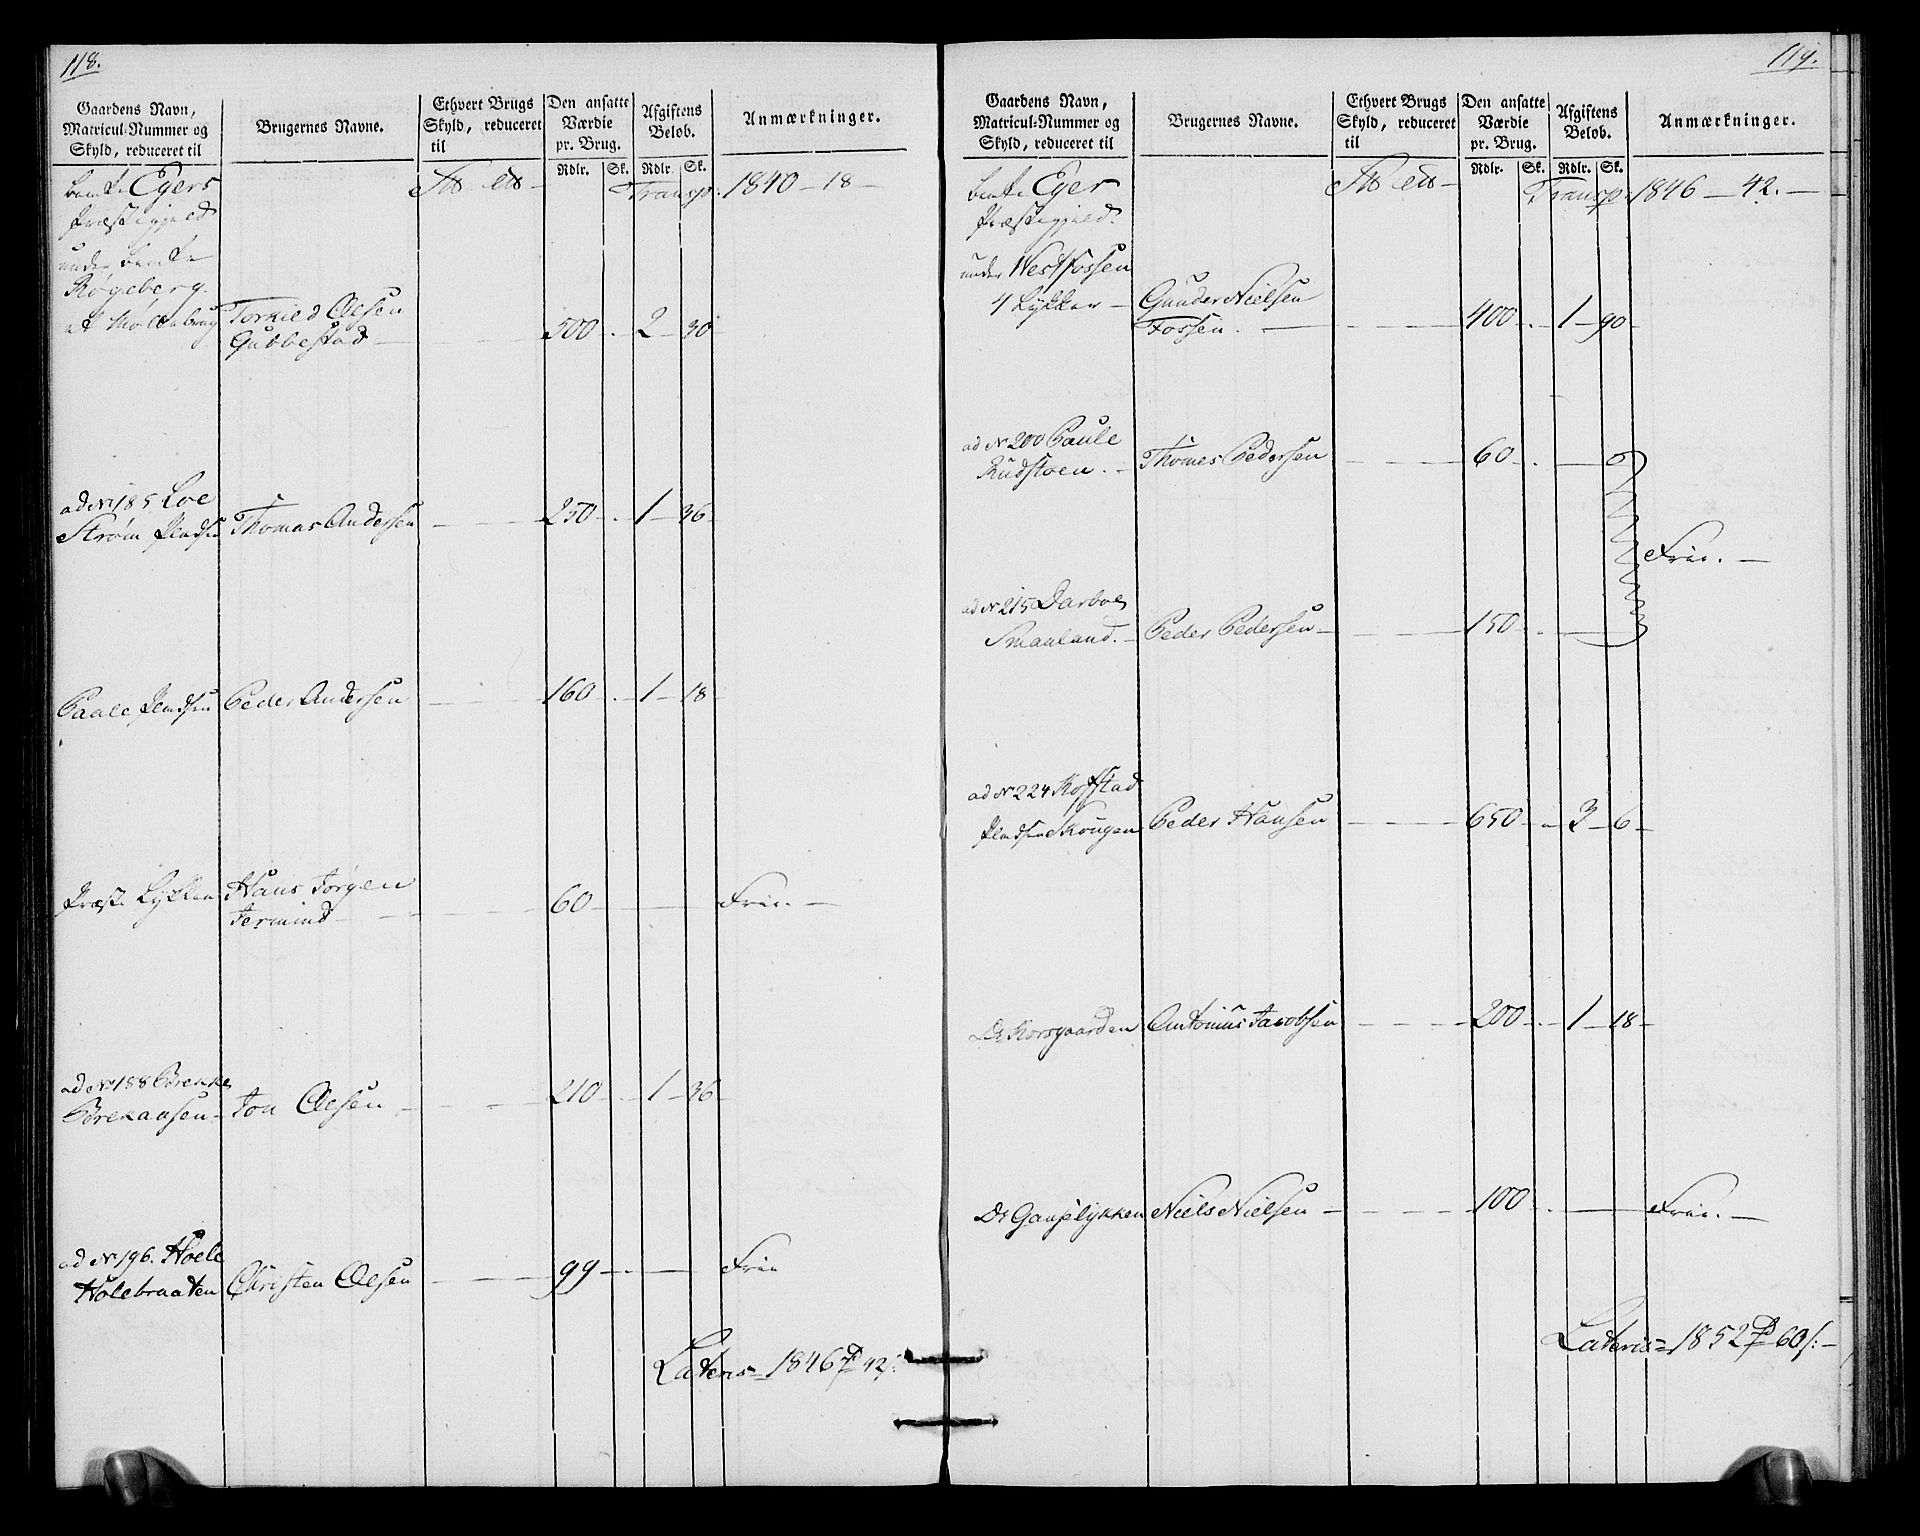 118.
Gaardens Navn, Matricul-Nummer og Skyld, reduceret til
Brugernes Navne.
Ethvert Brugs Skyld, reduceret til
Den ansatte Værdie pr. Brug.
Afgiftens Beløb.
Anmærkninger.
Rdlr. Sk. Rdlr. Sk.
Egers Transp. 1840 - 18 -
Præstegjeld
under
Røgeberg.
Torkild Olsen
Gubbestad 500 . 2 - 30
ad No 185 Loe
Strøm Pladsen Thomas Andersen 250 . 1 - 36
Paale Pladsen Peder Andersen 160 . 1 - 18
Præste Løkken Hans Jørgen
Fermind 60 Frie.
ad No 188 Brekke
Brekansen Jon Olsen 210 1 - 36
ad No 196. Hoele
Holebraaten Christen Olsen 99 Frie
Lateris 1846 42
119.
Gaardens Navn, Matricul-Nummer og Skyld, reduceret til
Brugernes Navne.
Ethvert Brugs Skyld, reduceret til
Den ansatte Værdie pr. Brug.
Afgiftens Beløb.
Anmærkninger.
Rdlr. Sk. Rdlr. Sk.
Eger Transp. 1846 - 42. -
Præstegjeld.
under Westfossen
4 Lykker - Gunder Nielsen
Fossen. 400 . 1 - 90
ad No 200 Paule
Rudstoen. Thomes Pedersen 60
Frie.
ad No 215 Darboe
Smaaland. Peder Pedersen 150
ad No 224 Hoffstad
Pladsen Skougen Peder Hansen 650 3 - 6
Do Korsgaarden Antonius Jacobsen 200 1 - 18
Do Gauplykken Niels Nielsen 100 Frie.
Lateris 1852 60